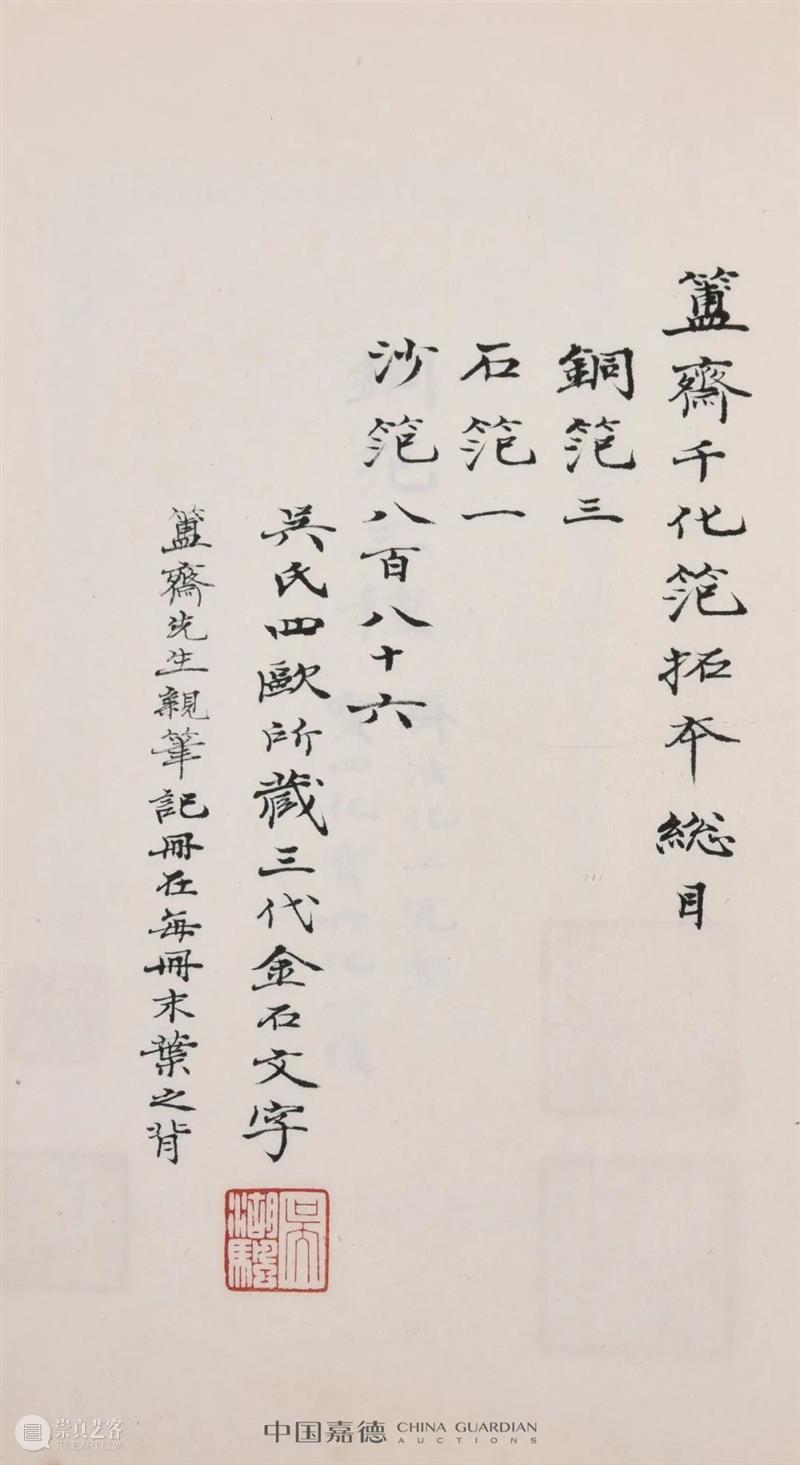 簠齋千化笵拓本總目
銅笵三
石笵一
沙笵八百八十六
吳氏四歐所藏三代金石文字
簠齋先生親筆記冊在每冊末葉之背
吳湖驂
中国嘉德 CHINA GUARDIAN AUCTIONS
崇真艺客
TRUEART.COM